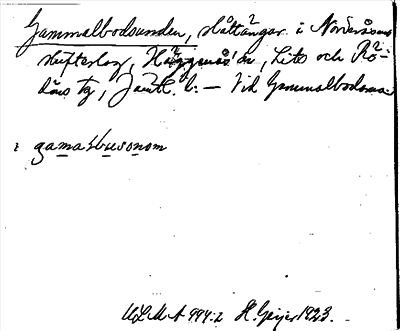 Gammelbodsunden, slåttängar i Norderåsens
skifteslag, Häggenås' sn, Lits och Rö-
döns tg, Jämtl. l. — Vid Gammalbodarna
i gamalbusonom
ULMA 994:2 H. Geijer 1923.